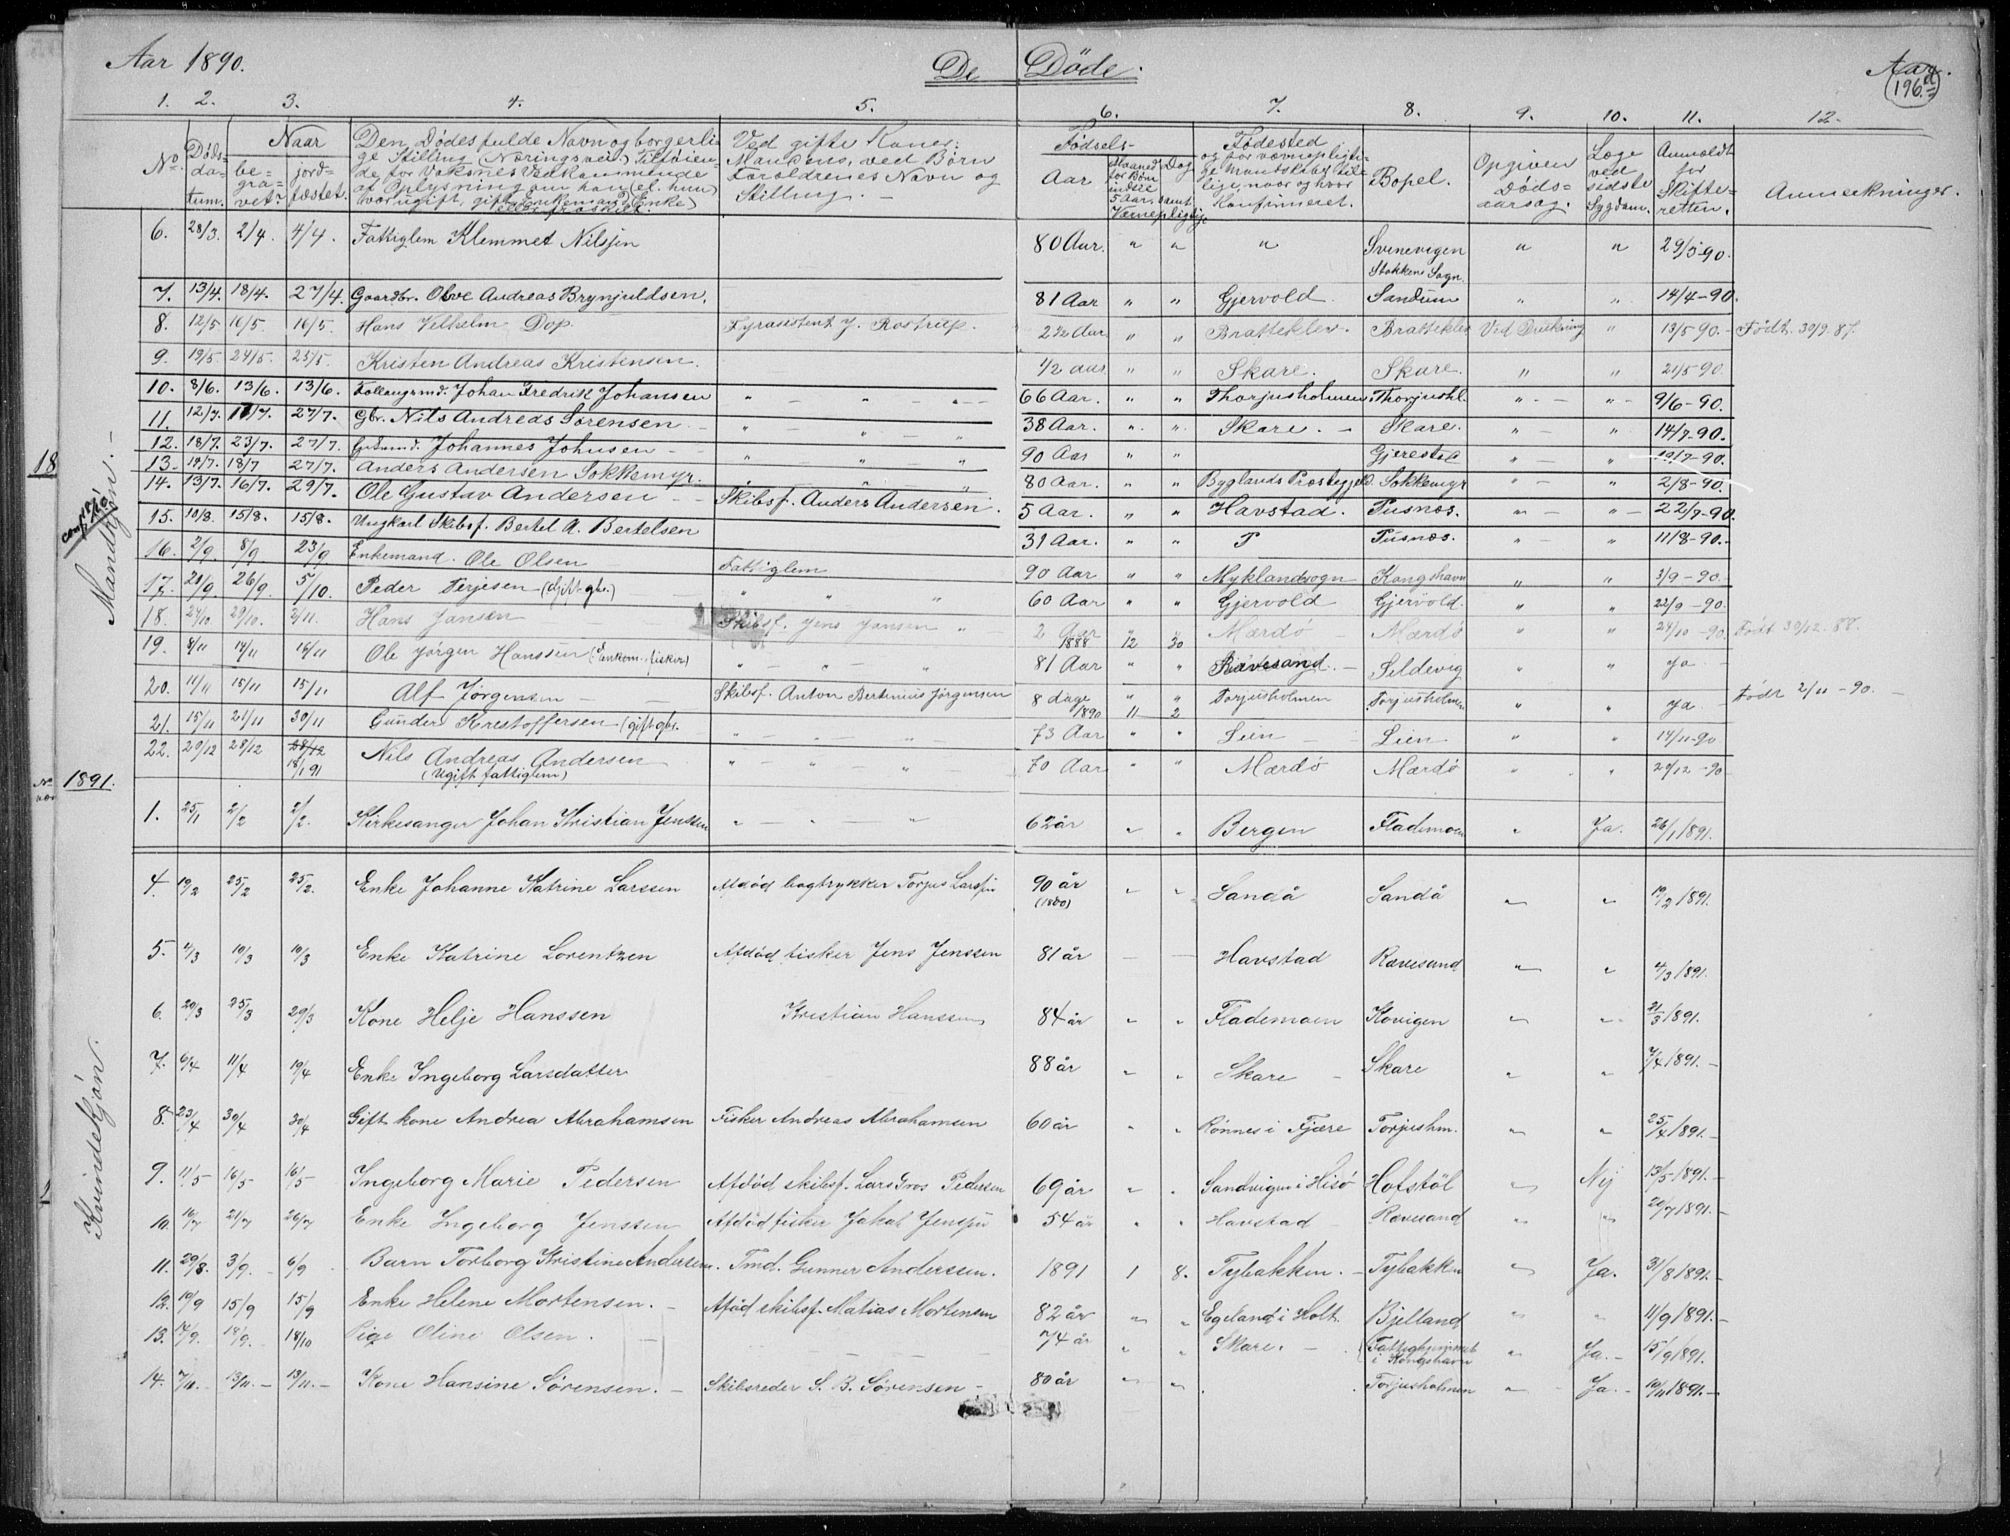 Aar 1890. De Døde. Aar.
196.d
1. 2. 3. 4. 5. 6. 7. 8. 9. 10. 11. 12.
No. Døds-datum. Naar be-gra-vet jord-fæstet.
Anmærkninger.
Bopel.
18
Mandkjøn. —
6. 28/3. 2/4. 4/4. Fattiglem Klemmet Nilsen 80 Aar. " " " Svinevigen Stokken Sogn " " 29/3-90.
7. 13/4. 18/4. 27/4. Gaardbr. Olve Andreas Brynjuldsen. 81 Aar " " Gjervold Sandum " " 14/4-90.
8. 12/5 16/5. 16/5. Hans Vilhelm Dop. Fyrassistent J. Rostrup. 2½ Aar " " Bratteklev. Bratteklev Ved Drukning " 13/5 90. Født. 30/9. 87.
9. 19/5 24/5. 25/5. Kristen Andreas Kristensen. 1/2 aar " " Skare. Skare. " " 21/5 90.
10. 8/6. 13/6. 13/6. Johan Fredrik Johansen " — " — " — 66 Aar. " " Thorjusholmen Thorjushl. " — " — 9/6-90.
11. 12/7. 17/7. 27/7. Gbr. Nils Andreas Sørensen " — " — " 38 Aar. " " Skare. — Skare. " — " 14/7-90.
12. 18/7. 23/7. 27/7. Johannes Johnsen " — " — " 90 Aar " " Gjerestad " — " 19/7-90.
13. 14/7. 18/7 27/7. Anders Andersen Sokkemyr. " " " 80 Aar. " " Byglands Præstegjeld. Sokkemyr " — " 2/8-90.
14. 13/7. 16/7. 29/7. Ole Gustav Andersen — Skibsf. Anders Andersen. 5 Aar. " " Havstad. Pusnes. " — " 22/7-90.
15. 10/8. 15/8. 15/8. Ungkarl Skibsf. Bertel A. Bertelsen 31 Aar. " " P Pusnæs. " — " 11/8-90.
16. 2/9. 8/9 23/9 Enkemand. Ole Olsen Fattiglem 90 Aar " " Myklandsogn Kongshavn " " 3/9-90.
17. 20/9 26/9. 5/10. Peder Terjesen (Gift gbr.) " " " 60 Aar " " Gjervold Gjervold. " " 22/9-90.
18. 24/10 29/10. 2/11. Hans Jansen Skibsf. Jens Jansen " 2 Aar 1888 12 30 Mærdø — Mærdø " " 24/10-90. Født 30/12. 88.
19. 8/11 14/11 16/11 Ole Jørgen Hanssen (Enkem. fisker) " — " — " 81 Aar " " Rævesand — Sildevig " " ja
20. 11/11 15/11 15/11 Alf Jørgensen — Skibsf. Anton Bertinius Jørgensen 8 dage 1890 11 2 Torjusholmen Torjusholmen " " ja — Født 2/11-90. —
21. 15/11 21/11 30/11 Gunder Krestoffersen (gift gbr. " — " — " 73 Aar " " Lien — Lien " " 14/11-90
22. 20/12 28/12 28/12 18/1 91 Nils Andreas Andersen (Ugift fattiglem) " — " — " 70 Aar " " Mærdø Mærdø " " 29/12-90
1891.
1. 25/1 2/2 2/2. Kirkesanger Johan Kristian Jenssen " — " — " 62 år " " Bergen Flademoen " Ja. 26/1 1891.
Kvindekjøn.
4 19/2 25/2 25/2. Enke Johanne Katrine Larssen Afdød bogtrykker Torjus Larssen 90 år (1800) " " Sandå Sandå " " 19/2 1891.
5. 4/3 10/3 10/3 Enke Katrine Lorentzen Afdød fisker Jens Jenssen 81 år — — Havstad Rævesand " " 4/3 1891.
6. 20/3 25/3 29/3 Kone Helje Hanssen Kristian Hanssen 84 år " " Flademoen Kovigen " " 21/3 1891.
7. 6/4 11/4 19/4 Enke Ingeborg Larsdatter 88 år " " Skare — Skare " " 7/4 1891. —
8. 23/4 30/4 30/4 Gift kone Andrea Abrahamsen Fisker Andreas Abrahamsen 60 år " " Rønnes i Fjære Torjushm. " " 25/4 1891. —
9. 11/5 16/5 16/5 Ingeborg Marie Pedersen Afdød skibsf. Lars Gros Pedersen 69 år " " Sandvigen i Hisø Hofstøl " Nej 13/5 1891. —
10. 16/7 21/7 26/7 Enke Ingeborg Jenssen Afdød fisker Jakob Jenssen 54 år " " Havstad — Rævesand " " 20/7 1891. —
11. 29/8. 3/9. — 6/9 Barn Torborg Kristine Andersen. Tmd. Gunner Anderssen. 1891 1 8. Tybakken. — Tybakken " Ja. 31/8 1891. —
12. 10/9 15/9 15/9 Enke Helene Mortensen. — Afdød skibsf. Matias Mortensen 82 år " " Egeland i Holt Bjelland " " 11/9 1891. —
13. 14/9. 18/9. 18/10 Pige Oline Olsen. — 74 år " " Skare. — (Fattighjemmet i Kongshavn " Ja. — 15/9 1891.
14. 7/11. 13/11. — 13/11. — Kone Hansine Sørensen. — Skibsreder S. B. Sørensen — 80 år " " Torjusholmen " Ja. — 10/11 1891. —